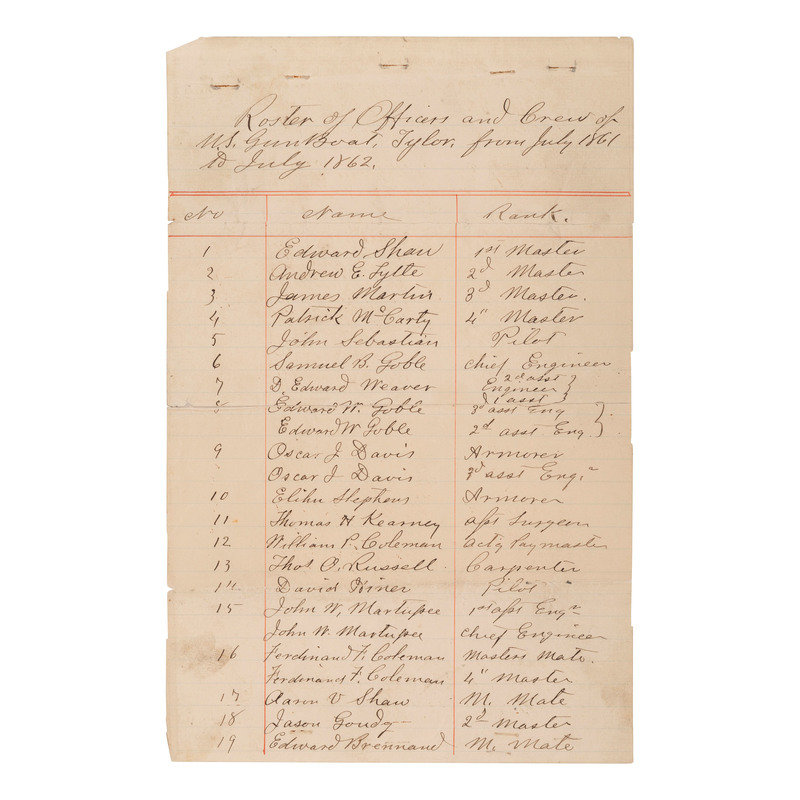 Roster of Officers and Crew of
U.S. Gun Boat, Tylor, from July 1861
to July 1862.
No Name Rank.
1 Edward Shaw 1st Master
2 Andrew E. Lytle 2d Master
3 James Martin 3d Master.
4 Patrick McCarty 4" Master
5 John Sebastian Pilot
6 Samuel B. Goble chief Engineer
7 D. Edward Weaver 2d asst Engineer
1st asst
8 Edward W. Goble 3d asst Eng
Edward W Goble 2d asst Eng.
9 Oscar J Davis Armorer
Oscar J Davis 3d asst Engr
10 Elihu Stephens Armorer
11 Thomas H Kearney asst Surgeon
12 William P. Coleman actg Paymaster
13 Thos O. Russell Carpenter
14 David Hiner Pilot
15 John W, Martupee 1st asst Engr
John W. Martupee chief Engineer
16 Ferdinand F. Coleman Masters Mate.
Ferdinand F. Coleman 4" Master
17 Aaron V Shaw M. Mate
18 Jason Goudy 2d Master
19 Edward Brennand M. Mate